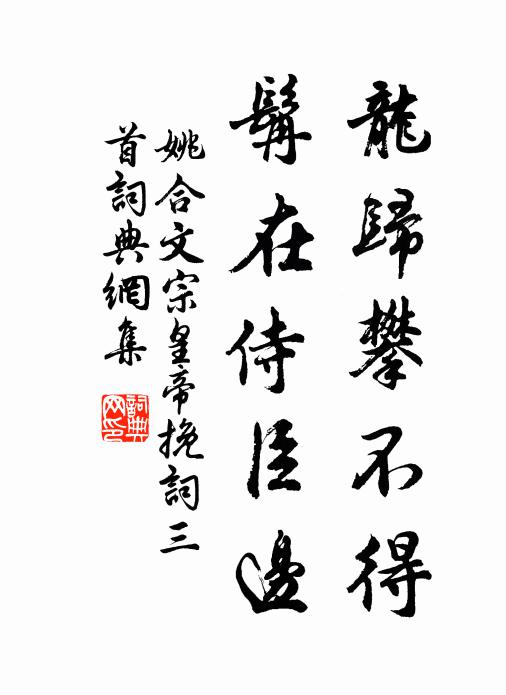 龍歸攀不得
髯在侍臣邊
姚合文宗皇帝挽詞三
首詞典網集
詞典
网印